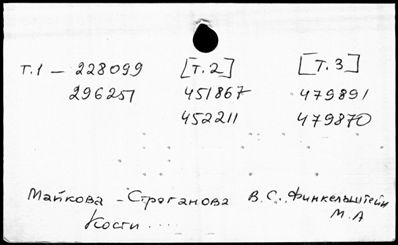 т.1 – 228099 [т.2] [т.3]
296251 451867 479891
452211 479870
Майкова - Строганова В.С., Финкельштейн
Кости.... М.А